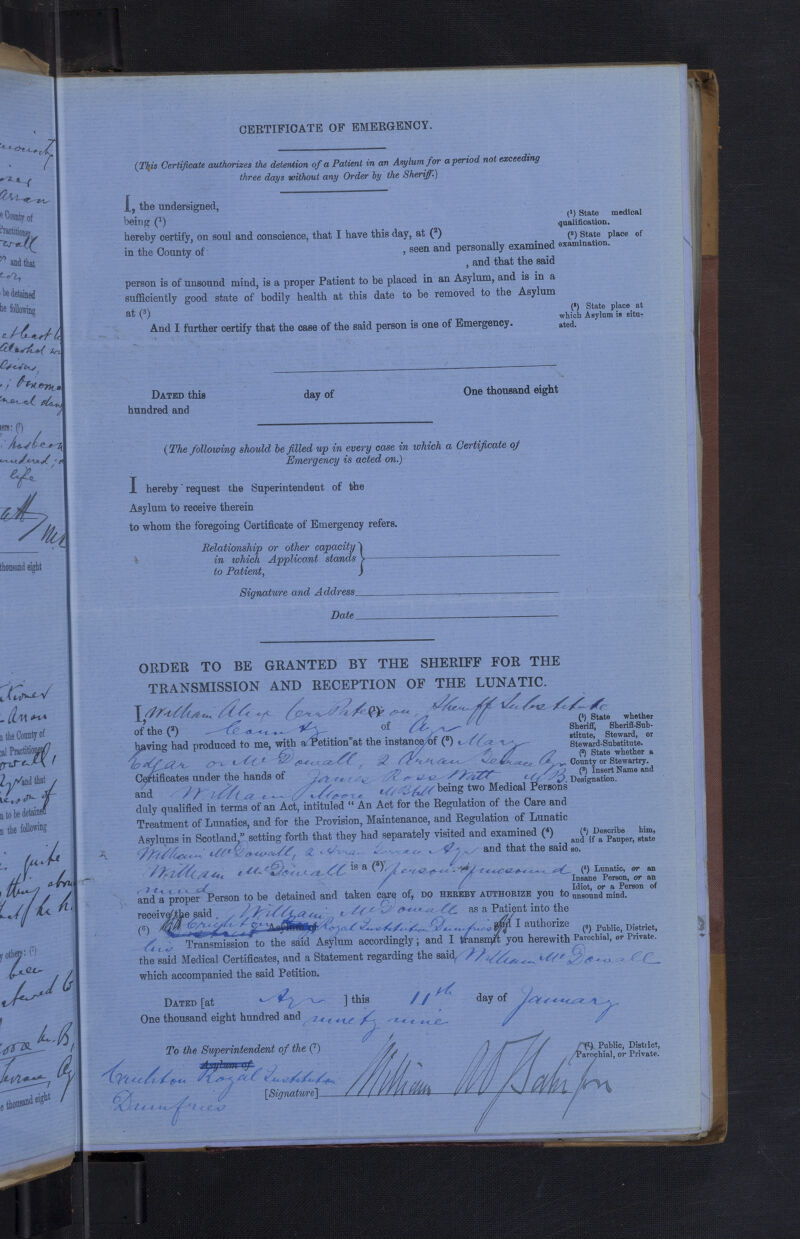 CERTIFICATE OF EMERGENCY.
(This Certificate authorizes the detention of a Patient in an Asylum for a period not exceeding
three days without any Order by the Sheriff.)
I, the undersigned,
being (¹)
(¹) State medical
qualification.
hereby certify, on soul and conscience, that I have this day, at (²)
(²) State place of
examination.
in the County of , seen and personally examined
, and that the said
person is of unsound mind, is a proper Patient to be placed in an Asylum, and is in a
sufficiently good state of bodily health at this date to be removed to the Asylum
at (³)
(³) State place at
which Asylum is situ-
ated.
And I further certify that the case of the said person is one of Emergency.
DATED this day of One thousand eight
hundred and
(The following should be filled up in every case in which a Certificate of
Emergency is acted on.)
I hereby request the Superintendent of the
Asylum to receive therein
to whom the foregoing Certificate of Emergency refers.
Relationship or other capacity
in which Applicant stands
to Patient,
Signature and Address
Date
ORDER TO BE GRANTED BY THE SHERIFF FOR THE
TRANSMISSION AND RECEPTION OF THE LUNATIC.
I, William Alex Orr Paterson (¹) Sheriff Substitute
of the (²) County of Ayr
(¹) State whether
Sheriff, Sheriff-Sub-
stitute, Steward, or
Steward-Substitute.
having had produced to me, with a Petition at the instance of (³) Mary
Edgar or McDowall, 2 Arran Terrace Ayr
(²) State whether a
County or Stewartry.
(³) Insert Name and
Designation.
Certificates under the hands of James Ross Watt M.B.
and William Moore M.B. being two Medical Persons
duly qualified in terms of an Act, intituled "An Act for the Regulation of the Care and
Treatment of Lunatics, and for the Provision, Maintenance, and Regulation of Lunatic
Asylums in Scotland," setting forth that they had separately visited and examined (⁴)
(⁴) Describe him,
and if a Pauper, state
so.
William McDowall, 2 Arran Terrace Ayr and that the said
William McDowall is a (⁵) person of unsound
mind
(⁵) Lunatic, or an
Insane Person, or an
Idiot, or a Person of
unsound mind.
and a proper Person to be detained and taken care of, DO HEREBY AUTHORIZE you to
receive the said William McDowall as a Patient into the
(⁶) Crichton Asylum of Royal Institution Dumfries and I authorize
(⁶) Public, District,
Parochial, or Private.
his Transmission to the said Asylum accordingly; and I transmit you herewith
the said Medical Certificates, and a Statement regarding the said William McDowall
which accompanied the said Petition.
DATED [at Ayr ] this 11th day of January
One thousand eight hundred and ninety nine
To the Superintendent of the (⁷)
(⁷) Public, District,
Parochial, or Private.
Asylum of
Crichton Royal Institution
Dumfries
[Signature] William A O Paterson